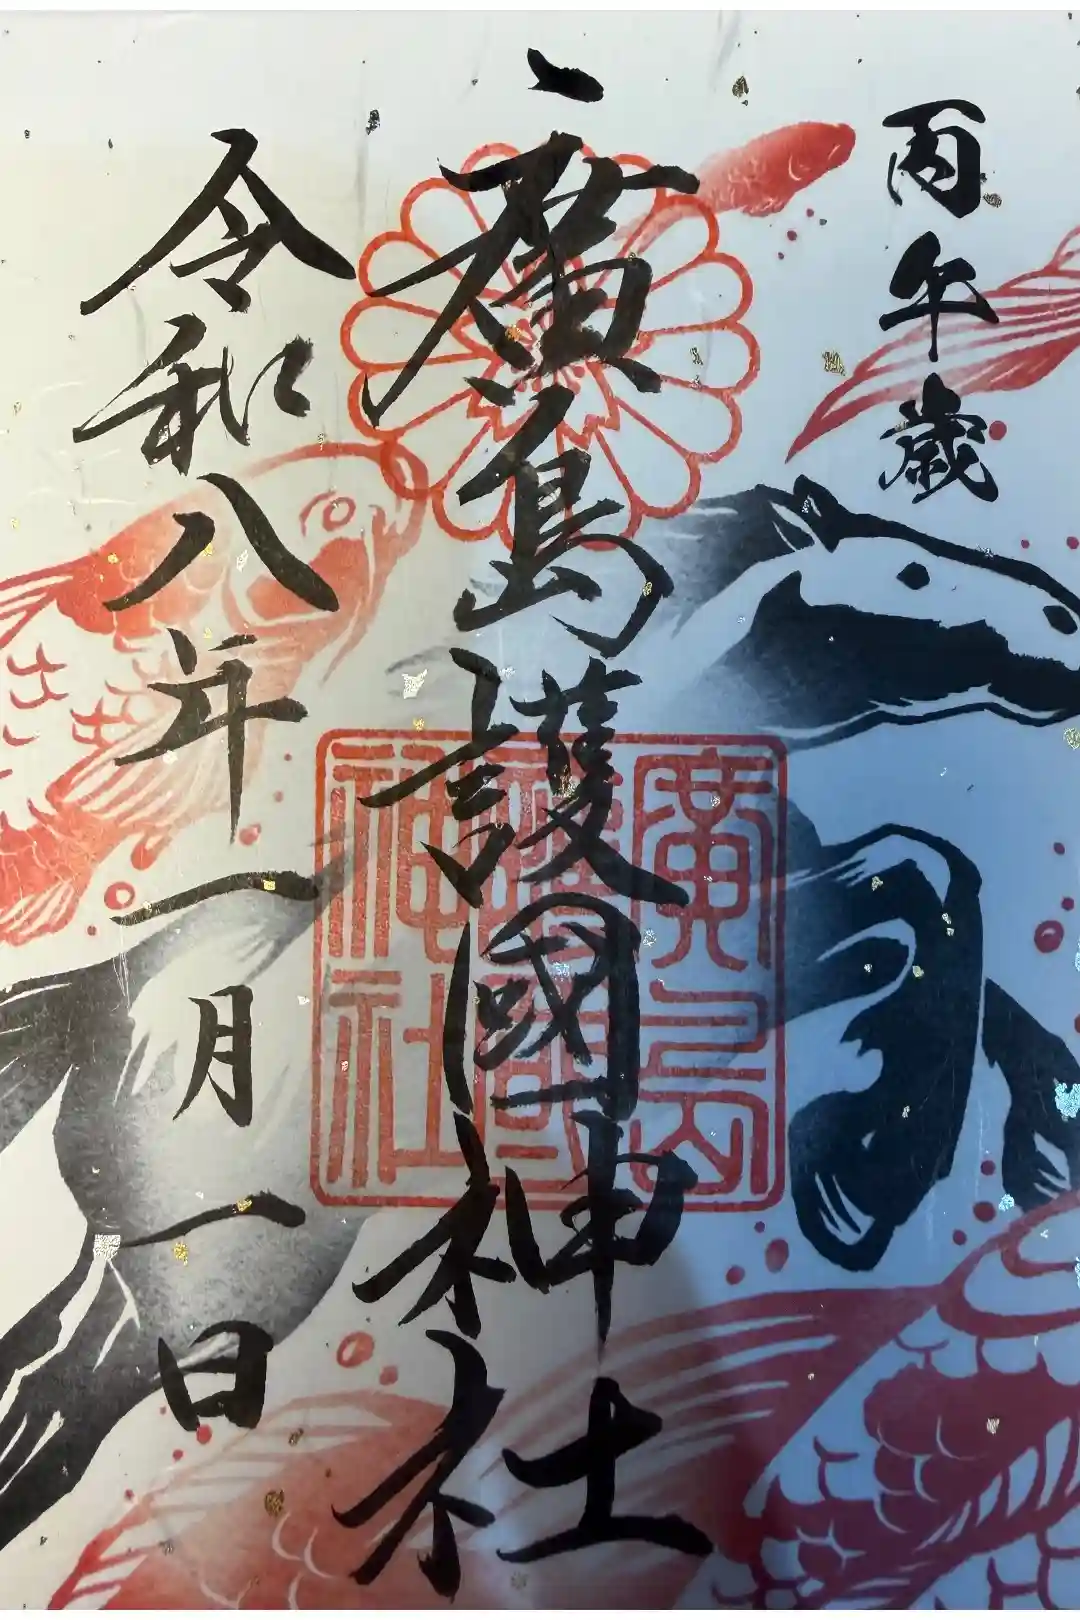 丙午歳
廣島護國神社
廣島
護國
神社
令和八年一月一日